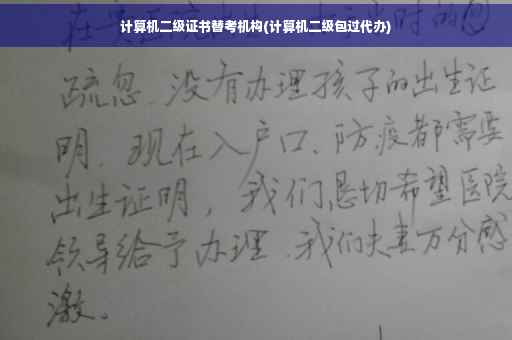 计算机二级证书替考机构(计算机二级包过代办)
疏忽.没有办理孩子的出生证
明.现在入户口、防疫都需要
出生证明，我们恳切希望医院
领导给予办理.我们夫妻万分感
激。